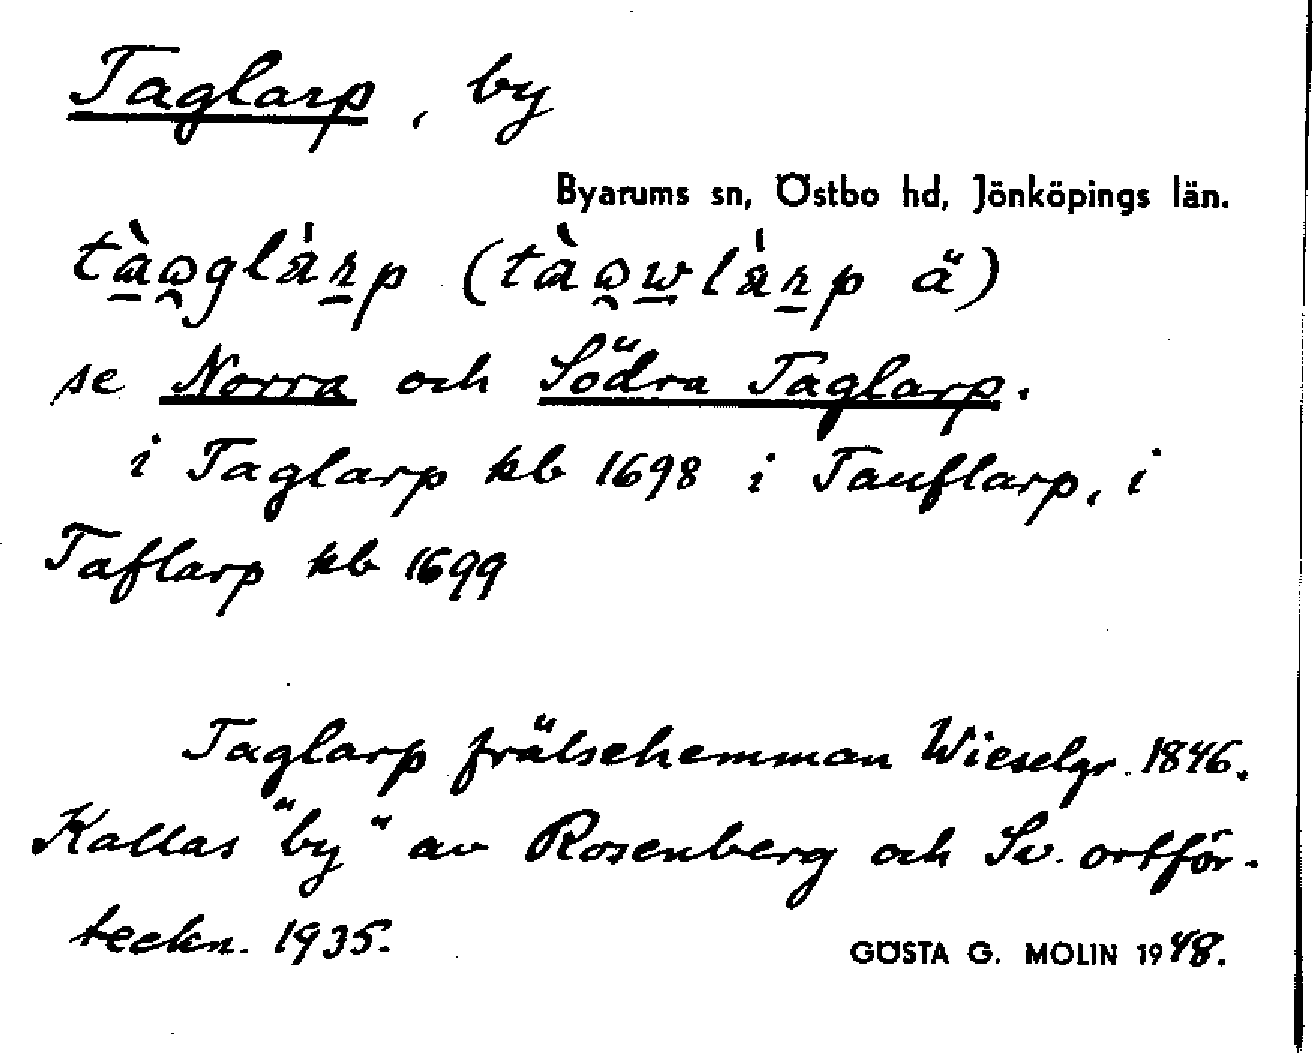 Taglarp, by
Byarums sn, Östbo hd, Jönköpings län.
tàǫglárp (tàǫwlárp ä)
se Norra och Södra Taglarp.
i Taglarp kb 1698 i Tauflarp, i
Taflarp kb 1699
Taglarp frälsehemman Wieselgr. 1846.
Kallas "by" av Rosenberg och Sv. ortför-
teckn. 1935.
GÖSTA G. MOLIN 1948.